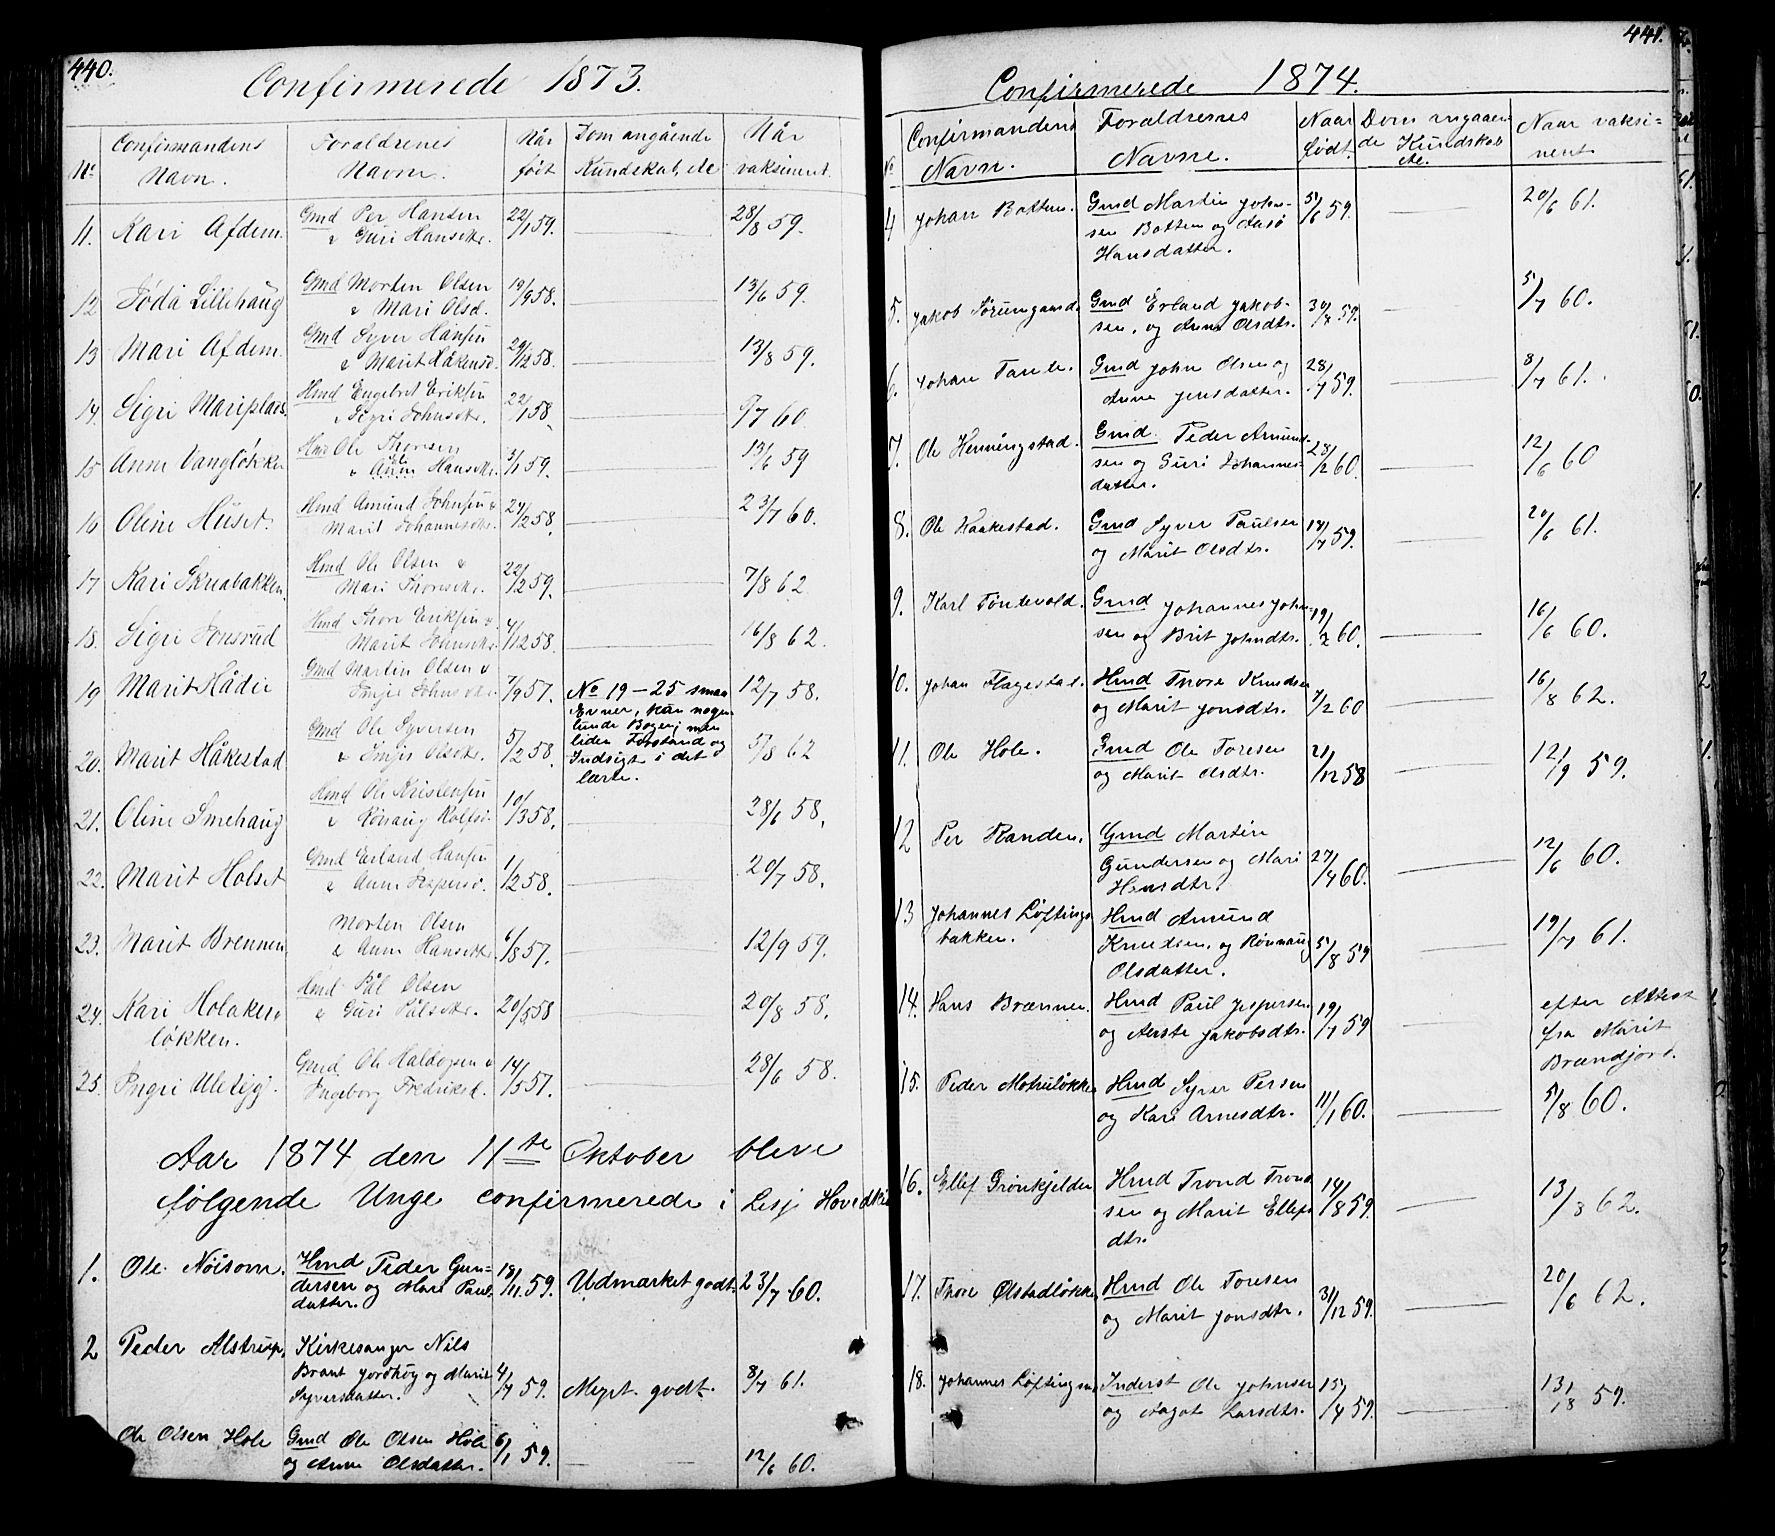 440.
Confirmerede 1873.
No Confirmandens Navn. Foraldrenes Navne. Når födt Dom angående Kundskab, etc Når vaksineret.
11. Kari Afdem. Gmd Per Hansen & Guri Hansdtr. 22/1 59. 28/8 59.
12 Lillehaug Gmd Morten Olsen & Mari Olsd. 19/9 58. 13/6 59.
13 Mari Afdem. Gmd Syver Hansen & Marit Håkensd. 29/12 58. 13/8 59.
14. Sigri Mariplads. Hmd Engebret Eriksen & Sigri Johnsdtr. 22/1 58. 60
15 Anne Vangløkken Hmd Ole Thoresen & Anne Hansdtr. 3/1 59. 13/6 59
16 Oline Huset. Hmd Amund Johnsen & Marit Johannesdtr. 24/2 58. 23/7 60.
17 Kari Skruabakken Hmd Ole Olsen & Mari Thoresdtr. 22/2 59. 7/8 62
18. Sigri Jonsrud Hmd Thore Eriksen & Marit Johnsdtr. 4/12 58. 16/8 62.
19 Marit Gmd Martin Olsen & Johnsdtr. 7/9 57. No 19 – 25 smaa Evner, kan nogenlunde Bogen; men liden Forstand og Indsigt i det lærte. 12/7 58.
20. Marit Håkestad Gmd Ole Syversen & Olsdtr. 5/2 58. 5/8 62
21. Oline Smehaug Hmd Ole Kristensen & Rönaug Rolfsd. 10/3 58. 28/6 58.
22. Marit Holset Gmd Erland Hansen & Anne Jespersd. 1/2 58. 20/7 58.
23. Marit Brennen Morten Olsen & Anne Hansdtr. 6/8 57. 12/9 59.
24. Kari Holakerløkken. Hmd Pål Olsen & Guri Pålsdtr. 20/5 58 20/8 58.
25. Ingri Gmd Ole Haldorsen & Ingeborg Fredriksd. 14/5 57. 28/6 58.
Aar 1874 den 11te Oktober bleve
følgende Unge confirmerede i Lesje Hovedki
1. Ole Nöisom. Hmd Peder Gundersen og Mari Paulsdatter. 18/11 59. Udmærket godt. 23/7 60.
2 Peder Alstrup, Kirkesanger Nils Brant Jordhøy og Marit Syversdatter. 4/7 59. Meget godt. 8/7 61.
Ole Olsen Hole Gmd Ole Olsen Hole og Anne Olsdatter. 6/1 59. 12/6 60.
441.
Confirmerede 1874.
No Confirmandens Navn. Forældrenes Navne. Naar født. Dom angaaende Kundskab etc. Naar vaksineret
4 Johan Botten. Gmd Martin Johnsen Botten og Aasö Hansdatter. 5/6 59. 20/6 61.
5. Jakob Gmd Erland Jakobsen, og Anne Olsdtr. 59. 5/7 60.
6. Johan Gmd John Olsen og Anne Jensdatter. 28/7 59. 8/7 61.
7. Ole Henningstad. Gmd. Peder Amundsen og Guri Johannesdatter. 23/2 60. 12/6 60
8. Ole Haakestad. Gmd Syver Paulsen og Marit Olsdtr. 14/7 59. 20/6 61.
9. Karl Töndevold. Gmd Johannes Johnsen og Brit Johndtr. 19/2 60. 16/6 60.
10. Johan Flagestad. Hmd Thore Knudsen og Marit Jonsdtr. 7/2 60 16/8 62.
11. Ole Hole. Gmd Ole Toresen og Marit Olsdtr. 21/12 58 12/9 59.
12 Per Randen. Gmd Martin Gundersen og Mari Hansdtr. 27/4 60. 12/6 60.
13 Johannes Løftingsbakken. Hmd Amund Knudsen, og Rønnaug Olsdatter. 5/8 59 19/7 61.
14. Hans Brænnen. Hmd Paul Jespersen og Aerste Jakobsdtr. 19/7 59 efter Attest fra Marit Brændjord.
15. Peder Hmd Syver Persen og Kari Arnesdtr. 11/1 60. 5/8 60.
16. Ellef Grönkjelden Hmd Trond Trondsen og Marit Ellefsdtr. 14/8 59. 13/3 62.
17. Thore Ølstadløkken Hmd Ole Toresen og Marit Jonsdtr. 31/12 59. 20/6 62.
18. Johannes Inderst Ole Johnsen og Aagot Larsdtr. 15/4 59. 13/8 59.